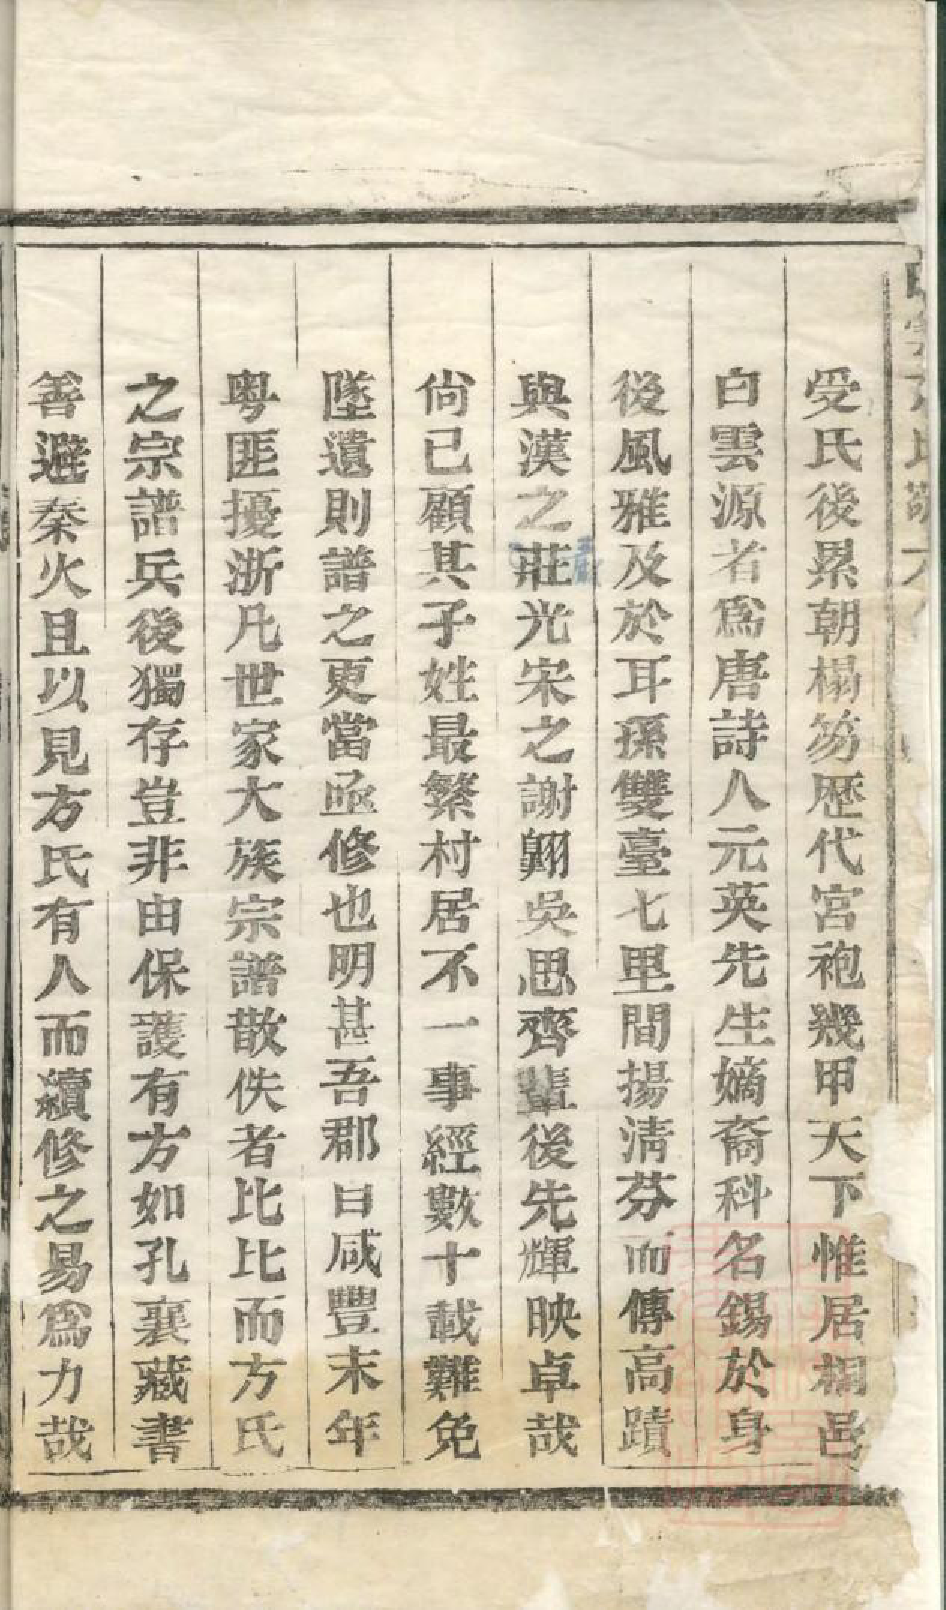 受氏後累朝榻笏歷代宮袍幾甲天下惟居桐邑
白雲源者爲唐詩人元英先生嫡裔科名錫於身
後風雅及於耳孫雙臺七里間揚淸芬而傳高蹟
與漢之莊光宋之謝翺吳思齊輩後先輝映卓哉
尙已顧其子姓最繁村居不一事經數十載難免
墜遺則譜之更當亟修也明甚吾郡曰咸豐末年
粤匪擾浙凡世家大族宗譜散佚者比比而方氏
之宗譜兵後獨存豈非由保護有方如孔襄藏書
善避秦火且以見方氏有人而續修之易爲力哉